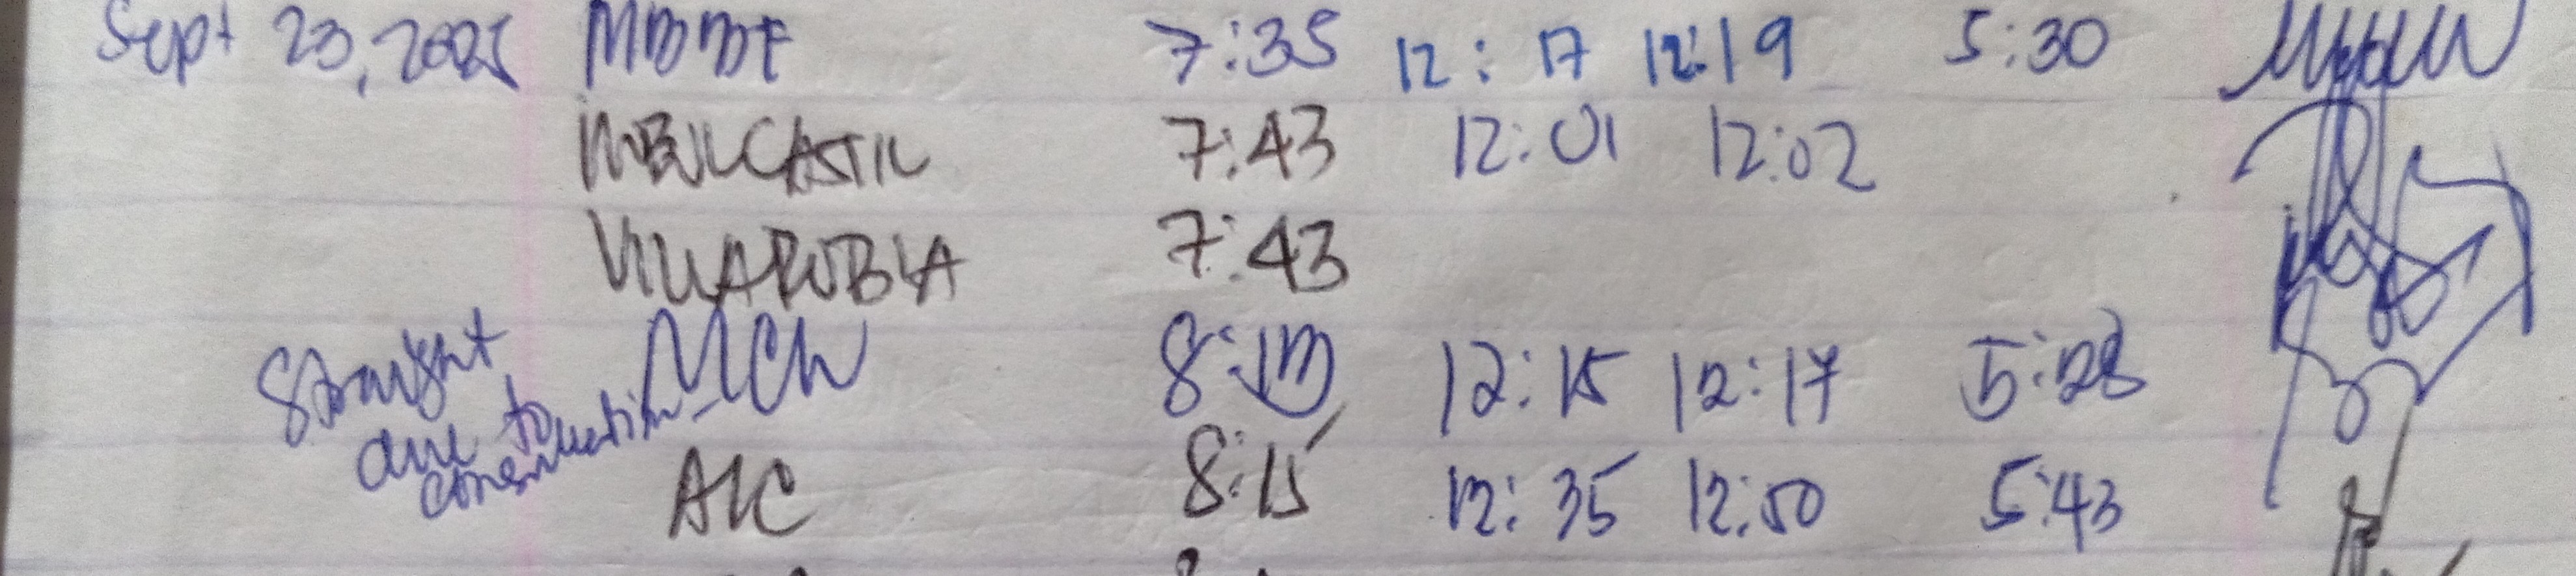 Sept 23, 2025 MBBDF 7:35 12:17 12:19 5:30
7:43 12:01 12:02
VILLAROBLA 7:43
Straight MCW 8:10 12:15 12:17 5:28
due to
AIC 8:15 12:35 12:50 5:43